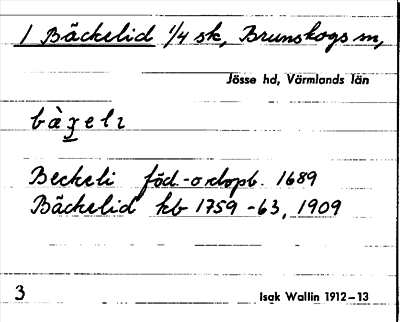 1 Bäckelid 1/4 sk, Brunskogs sn,
Jösse hd, Värmlands län
Beckeli föd.-o. dopb. 1689
Bäckelid kb 1759-63, 1909
3
Isak Wallin 1912–13